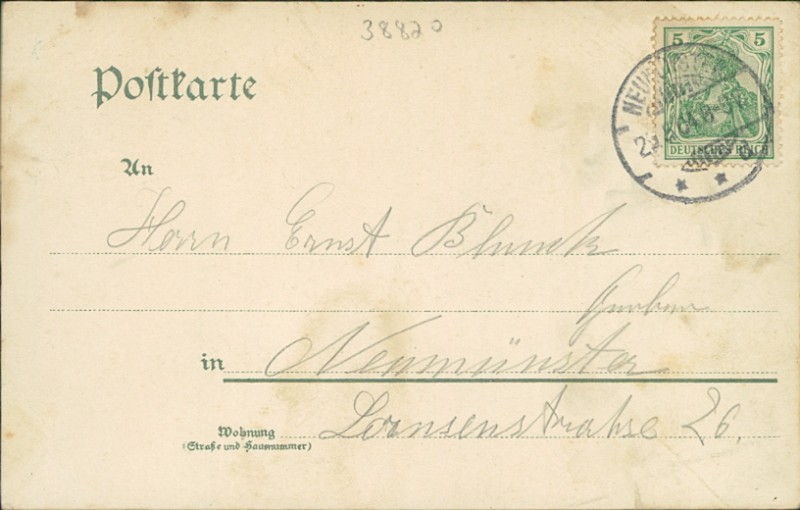 38820
5 5
DEUTSCHES REICH
Postkarte
An
Herrn Ernst Blunck
in Neumünster
Wohnung Lornsenstraße 26.
(Straße und Hausnummer)